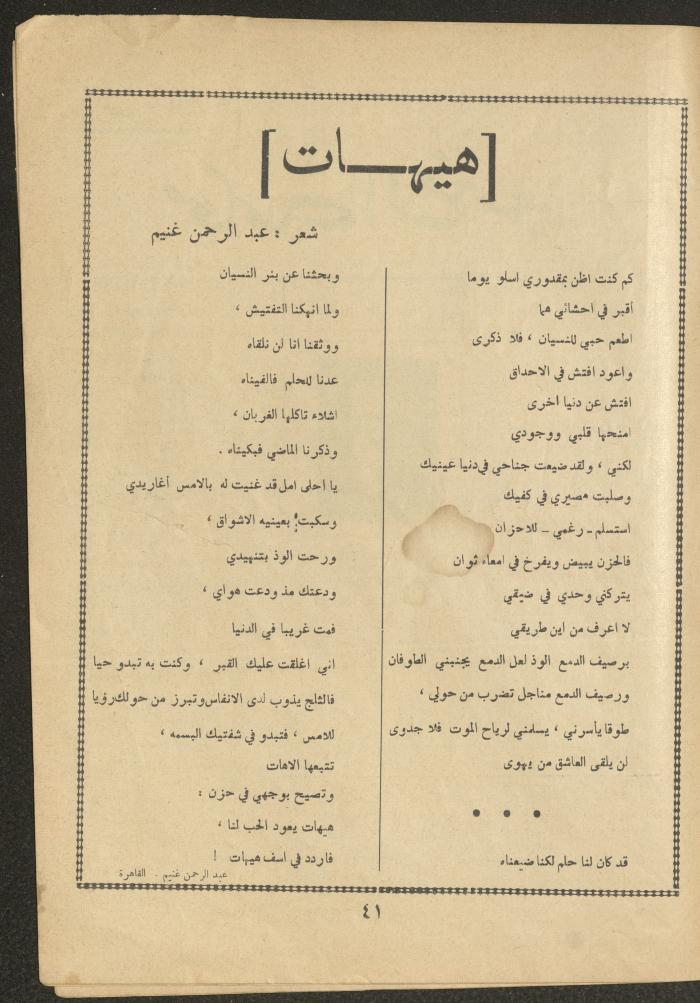 [هيهـــات]
شعر : عبد الرحمن غنيم
كم كنت اظن بمقدوري اسلو يوما
أقبر في احشائي هما
اطعم حبي للنسيان ، فلا ذكرى
واعود افتش في الاحداق
افتش عن دنيا اخرى
امنحها قلبي ووجودي
لكني ، ولقد ضيعت جناحي في دنيا عينيك
وصلبت مصيري في كفيك
استسلم ـ رغمي ـ للاحزان
فالحزن يبيض ويفرخ في امعاء ثوان
يتركني وحدي في ضيقي
لا اعرف من اين طريقي
برصيف الدمع الوذ لعل الدمع يجنبني الطوفان
ورصيف الدمع مناجل تضرب من حولي ،
طوقا يأسرني ، يسلمني لرياح الموت فلا جدوى
لن يلقى العاشق من يهوى
• • •
قد كان لنا حلم لكنا ضيعناه
وبحثنا عن بئر النسيان
ولما انهكنا التفتيش ،
ووثقنا انا لن نلقاه
عدنا للحلم فالفيناه
اشلاء تاكلها الغربان ،
وذكرنا الماضي فبكيناه .
يا احلى امل قد غنيت له بالامس أغاريدي
وسكبت بعينيه الاشواق ،
ورحت الوذ بتنهيدي
ودعتك مذ ودعت هواي ،
فمت غريبا في الدنيا
اني اغلقت عليك القبر ، وكنت به تبدو حيا
فالثلج يذوب لدى الانفاس وتبرز من حولك رؤيا
للامس ، فتبدو في شفتيك البسمه ،
تتبعها الاهات
وتصيح بوجهي في حزن :
هيهات يعود الحب لنا ،
فاردد في اسف هيهات !
عبد الرحمن غنيم . القاهرة
٤١